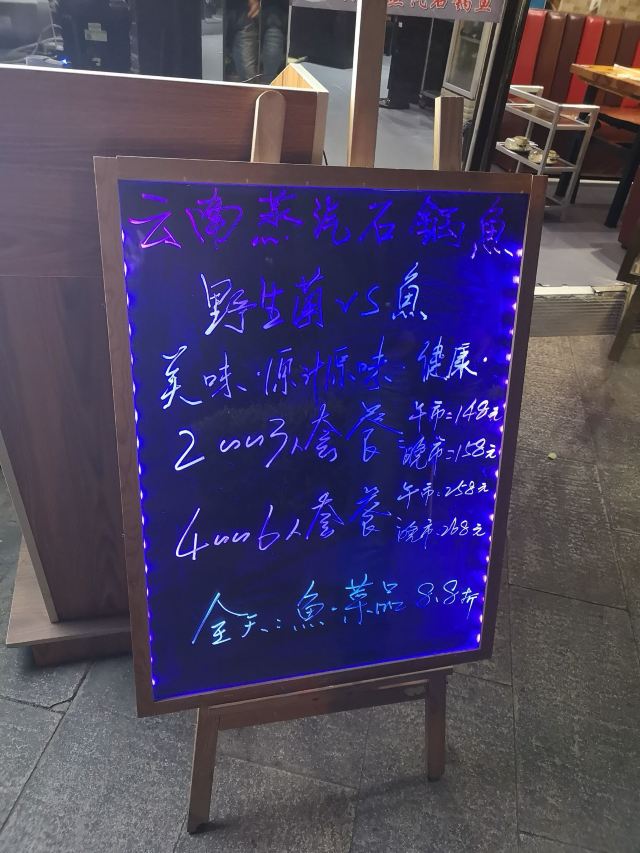 云南蒸汽石锅魚
野生菌vs魚
美味·原汁原味·健康·
2~~3人套餐 午市:148元
晚市:158元
4~~6人套餐 午市:258元
晚市:268元
全天:魚·菜品8.8折